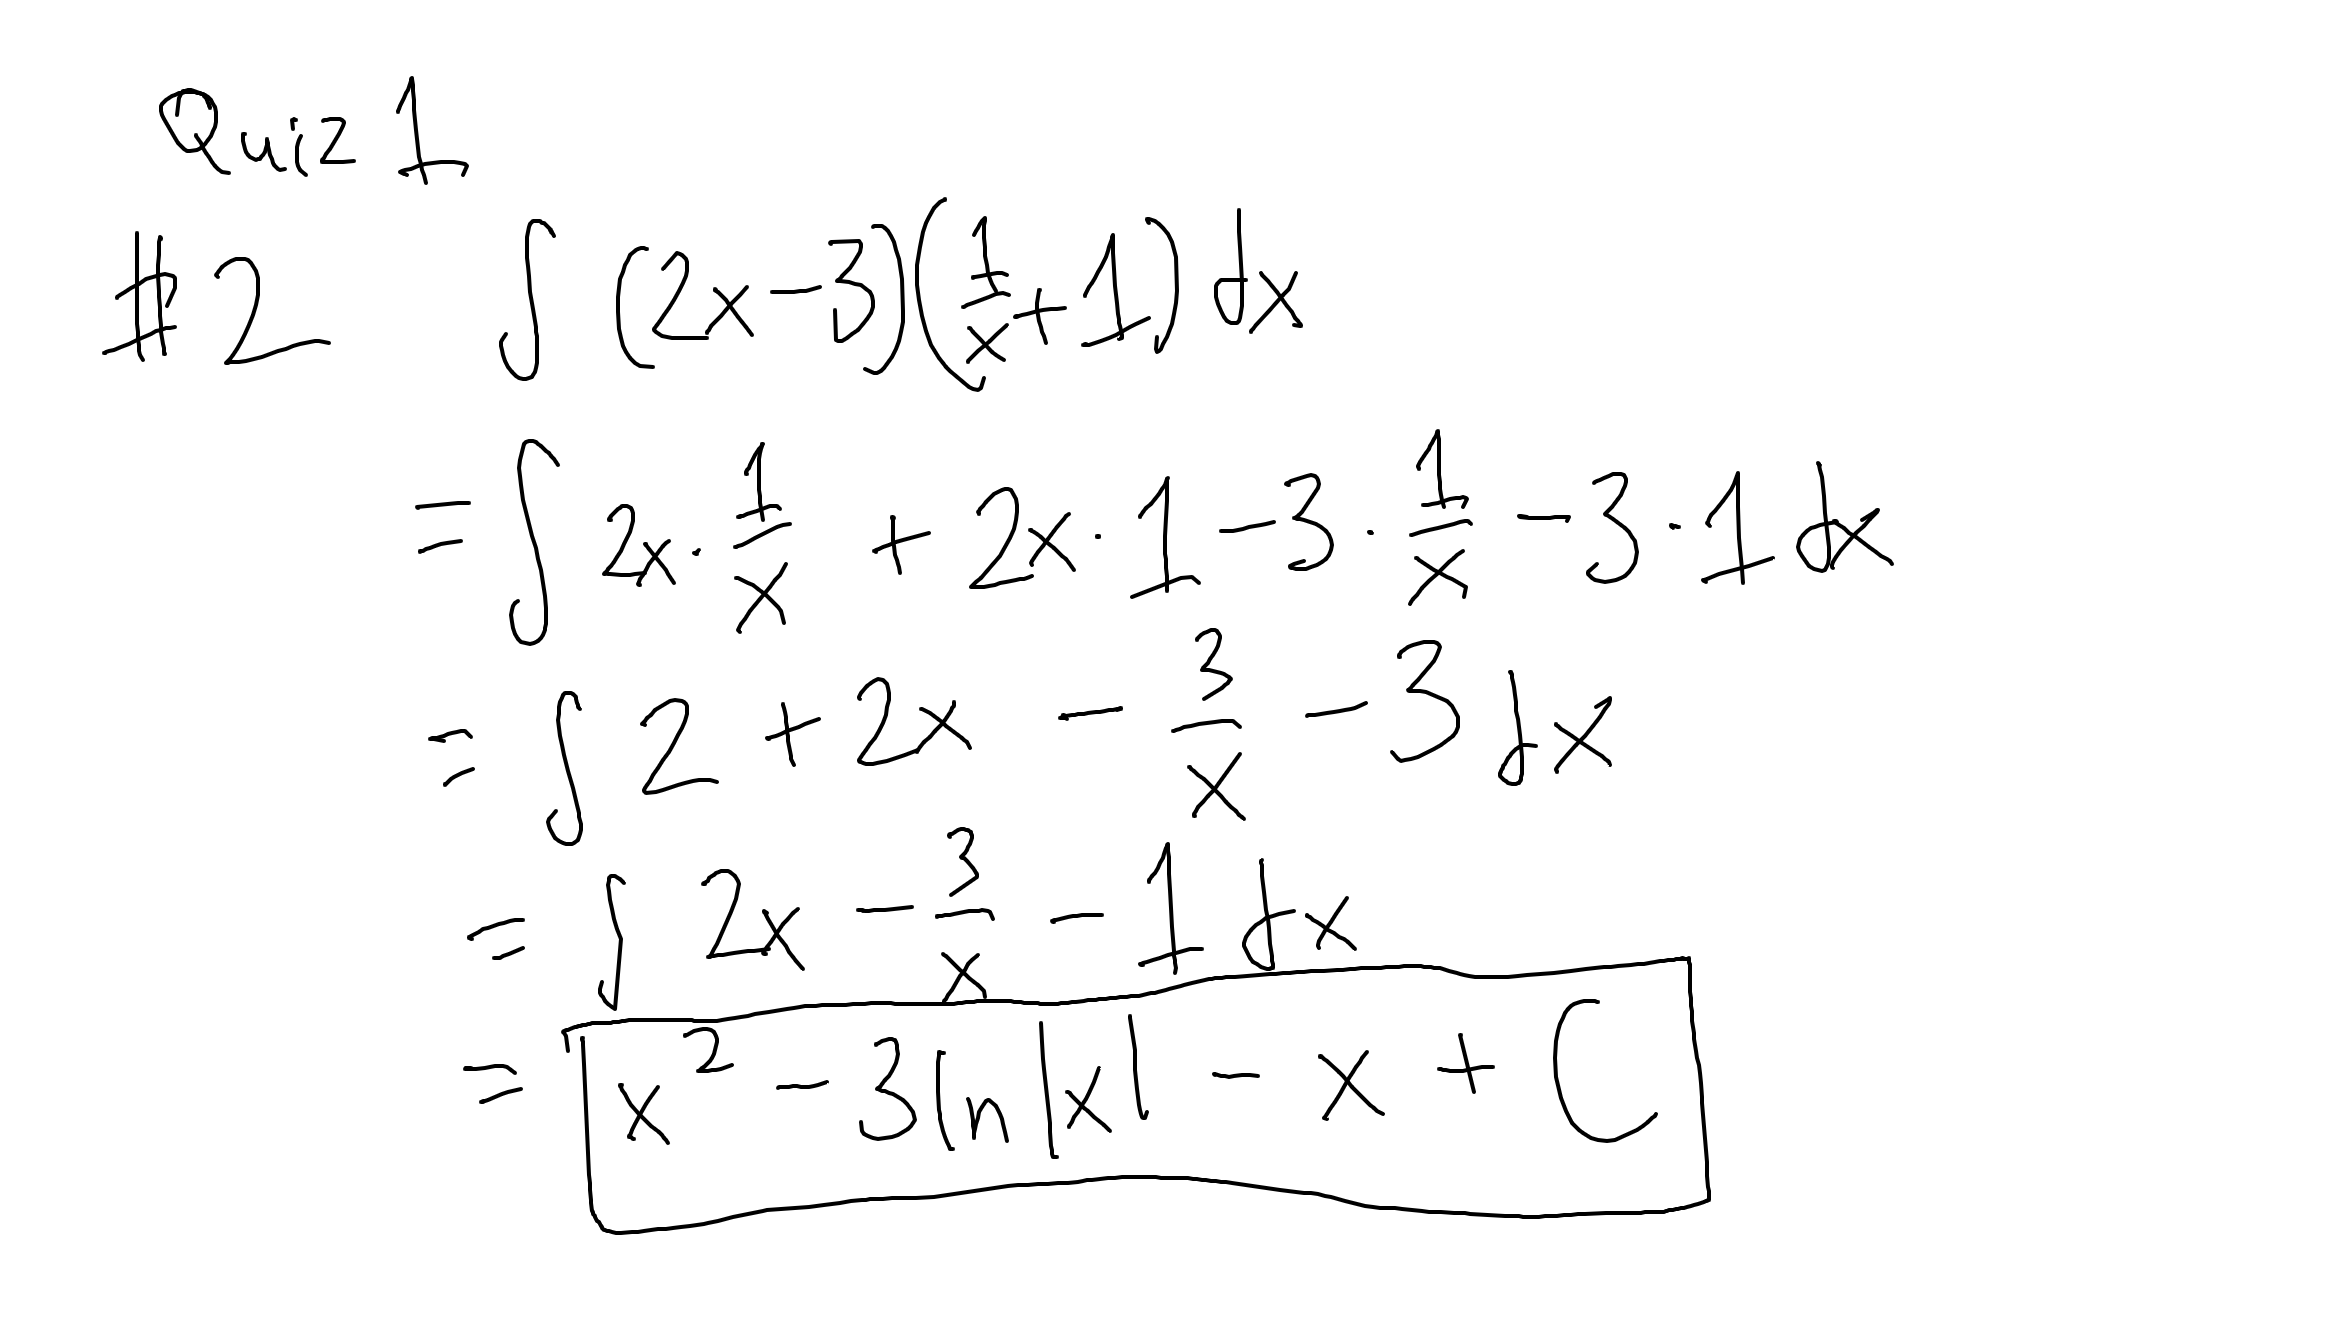 Quiz 1
#2 ∫ (2x-3)(1/x+1) dx
= ∫ 2x·1/x + 2x·1 - 3·1/x - 3·1 dx
= ∫ 2 + 2x - 3/x - 3 dx
= ∫ 2x - 3/x - 1 dx
= x² - 3 ln|x| - x + C